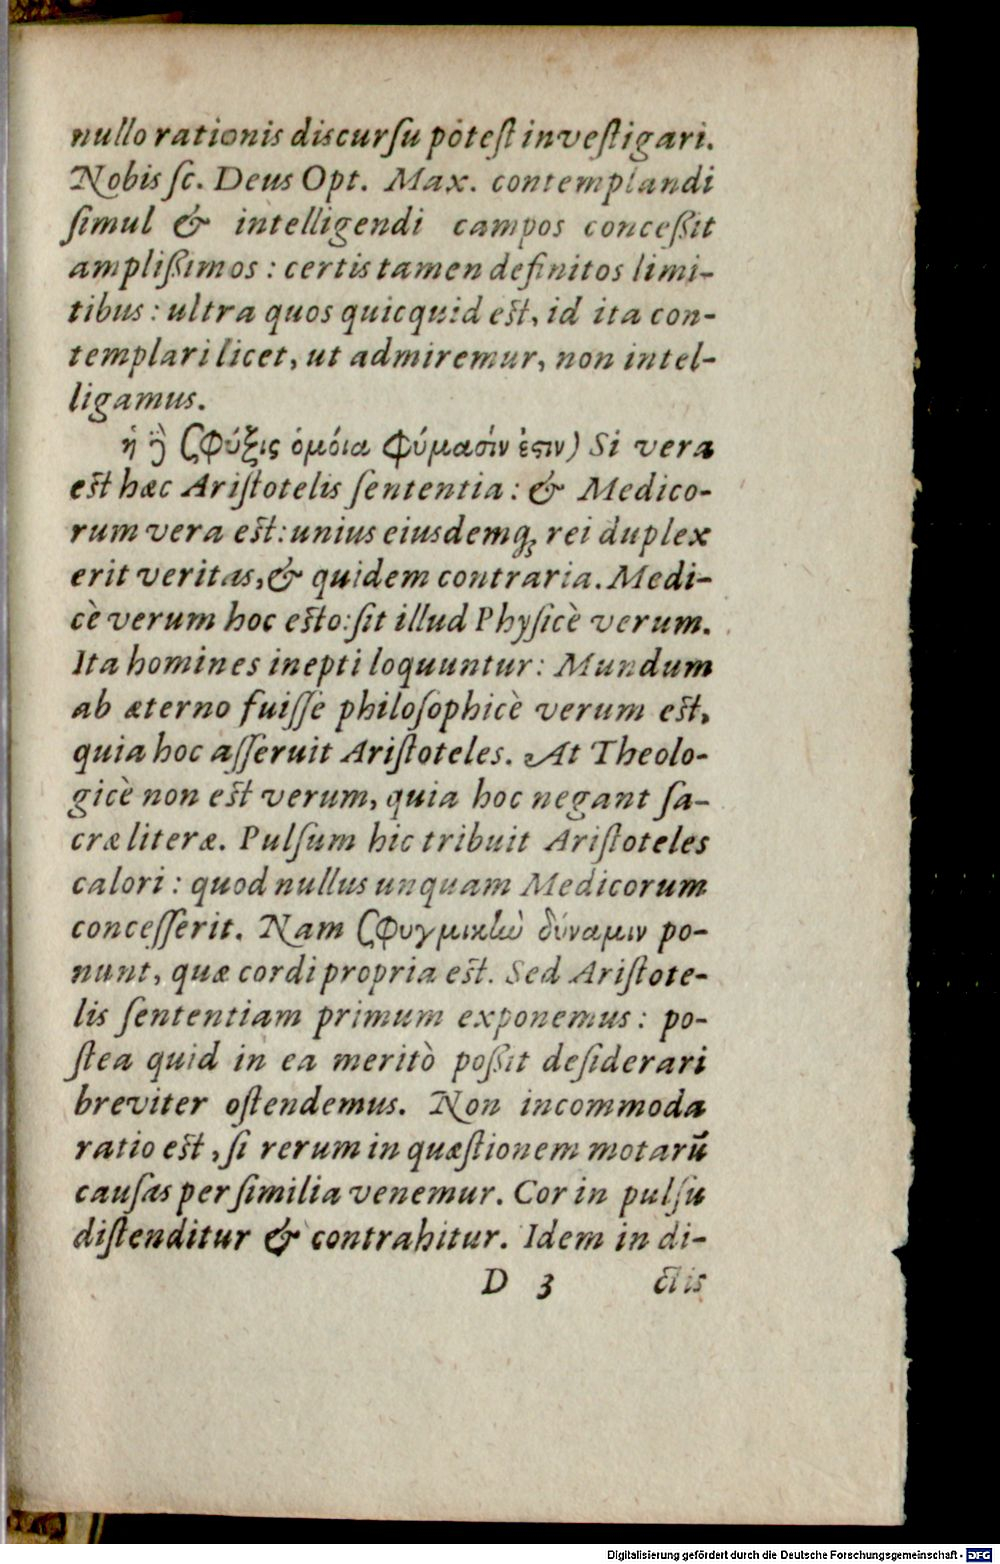 nullo rationis discurſu poteſt inveſtigari.
Nobis ſc. Deus Opt. Max. contemplandi
ſimul & intelligendi campos conceßit
amplißimos: certis tamen definitos limi-
tibus: ultra quos quicquid est, id ita con-
templari licet, ut admiremur, non intel-
ligamus.
ἡ ϛφύξις ὁμοία φύμασίν ἐϛιν) Si vera
est hæc Ariſtotelis ſententia: & Medico-
rum vera est: unius eiusdemq́; rei duplex
erit veritas, & quidem contraria. Medi-
cè verum hoc esto: ſit illud Phyſicè verum.
Ita homines inepti loquuntur: Mundum
ab æterno fuiſſe philoſophicè verum est,
quia hoc aſſeruit Ariſtoteles. At Theolo-
gicè non est verum, quia hoc negant ſa-
cræ literæ. Pulſum hic tribuit Ariſtoteles
calori: quod nullus unquam Medicorum
conceſſerit. Nam ϛφυγμικὴν δύναμιν po-
nunt, quæ cordi propria est. Sed Ariſtote-
lis ſententiam primum exponemus: po-
ſtea quid in ea meritò poßit deſiderari
breviter oſtendemus. Non incommoda
ratio est, ſi rerum in quæſtionem motarũ
cauſas per ſimilia venemur. Cor in pulſu
diſtenditur & contrahitur. Idem in di-
D 3 ctis
Digitalisierung gefördert durch die Deutsche Forschungsgemeinschaft - DFG